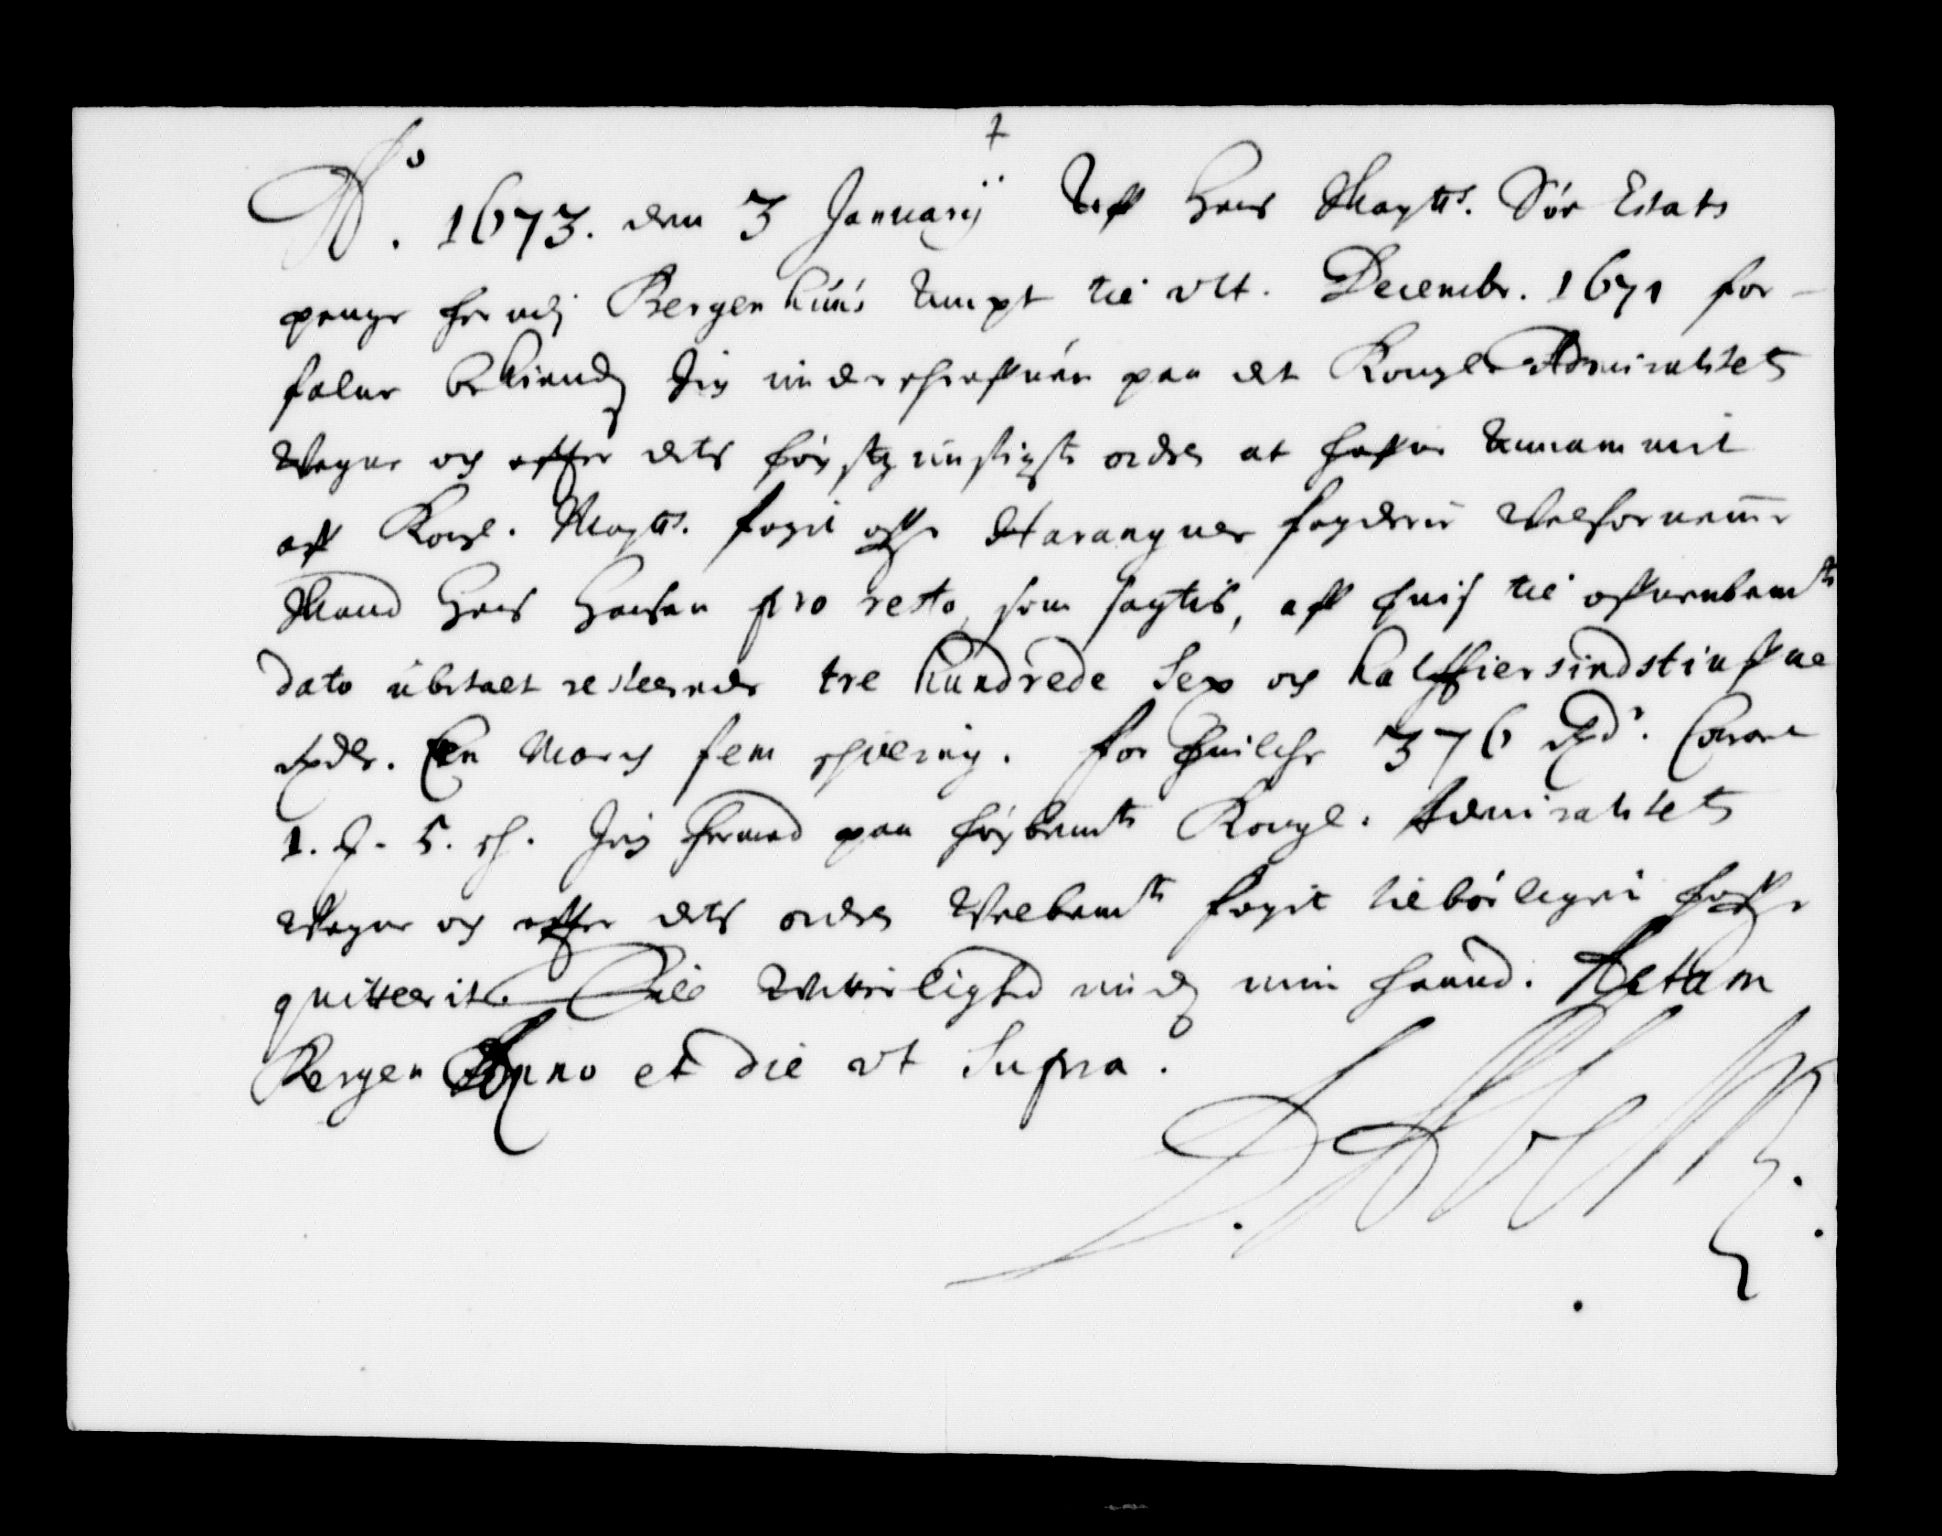 7
Ao. 1673. den 3 Januarij Aff Hans Maytts. Søe Estats
penge her udj Bergenhuus Ampt til ult. Decembr. 1671 for-
falne bekiender Jeg underschrefuen paa det Kongl. Admiralitets
Vegne och effter dets høystgunstigste ordre at hafue Annammit
aff Kongl. Maytts. fogit offr Harangver fogderie Velfornemme
Mand Hans Hansen pro resto, som sagtis, aff huis til offuenbemte
dato ubetalt resteerende tre hundrede Sex och halffiersindstiufue
Rxdlr. En March fem schilling. for Huilche 376 Rxdr. Courant
1. J. 5. sh. Jeg hermed paa høybemte Kongl. Admiralitets
Vegne och effter dets ordre Velbemte fogit tilbørligen haffr
quitterit. Till Vitterlighed under min haand. Actum
Bergen Anno et die ut Supra.